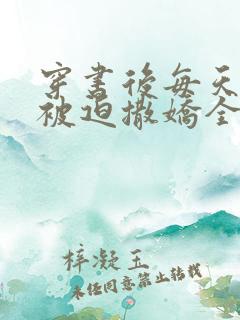 穿書後每天
被迫撒嬌全
梓凝玉
未经同意禁止转载